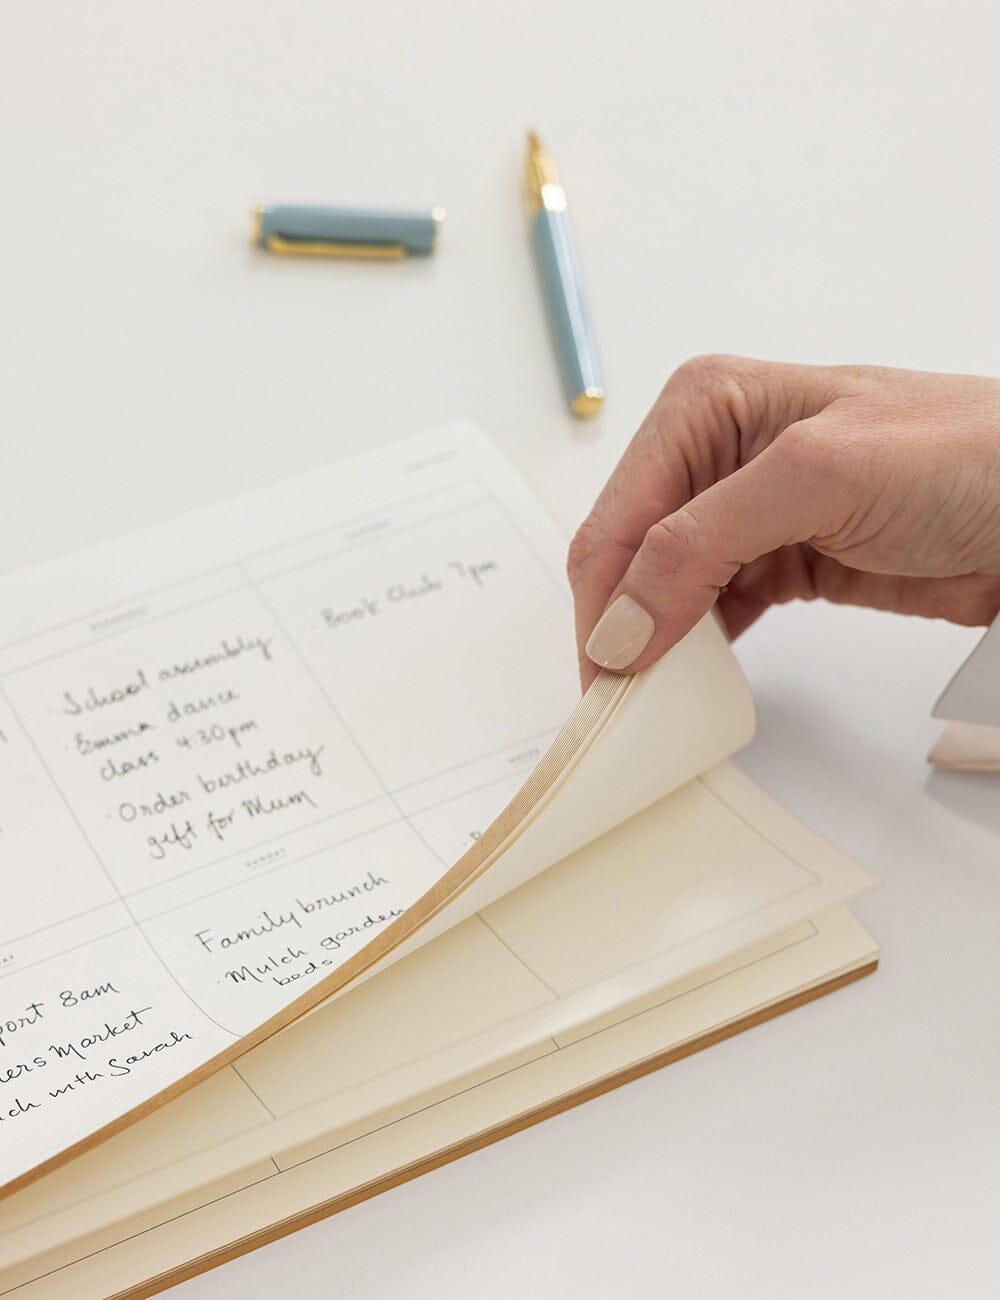 Book Club 7pm
School assembly
Emma dance
class 4:30pm
Order birthday
gift for Mum
SUNDAY
Family brunch
Mulch garden
beds
port 8am
ers Market
ch with Sarah